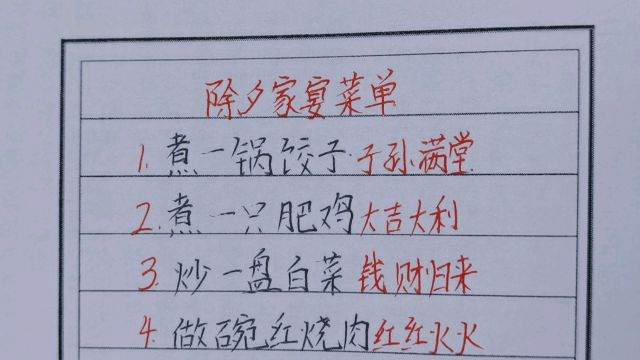 除夕家宴菜单
1. 煮一锅饺子子孙满堂
2. 煮一只肥鸡大吉大利
3. 炒一盘白菜钱财归来
4. 做碗红烧肉红红火火